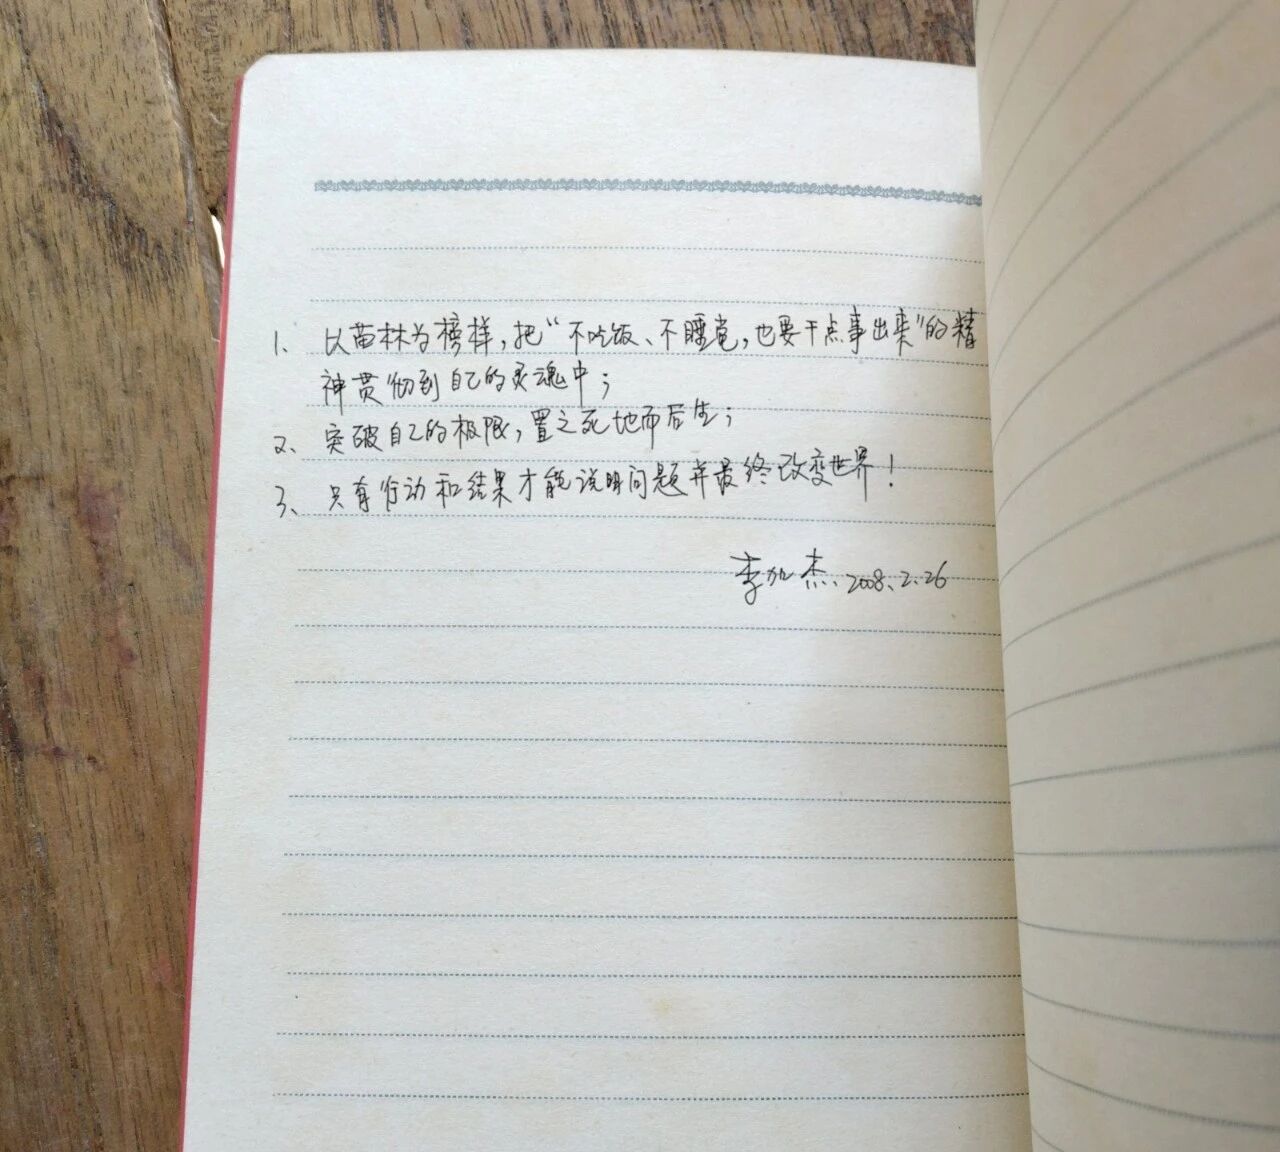 1、以苗林为榜样,把“不吃饭、不睡觉,也要干点事出来”的精
神贯彻到自己的灵魂中;
2、突破自己的极限,置之死地而后生;
3、只有行动和结果才能说明问题并最终改变世界!
李加杰、2008.2.26